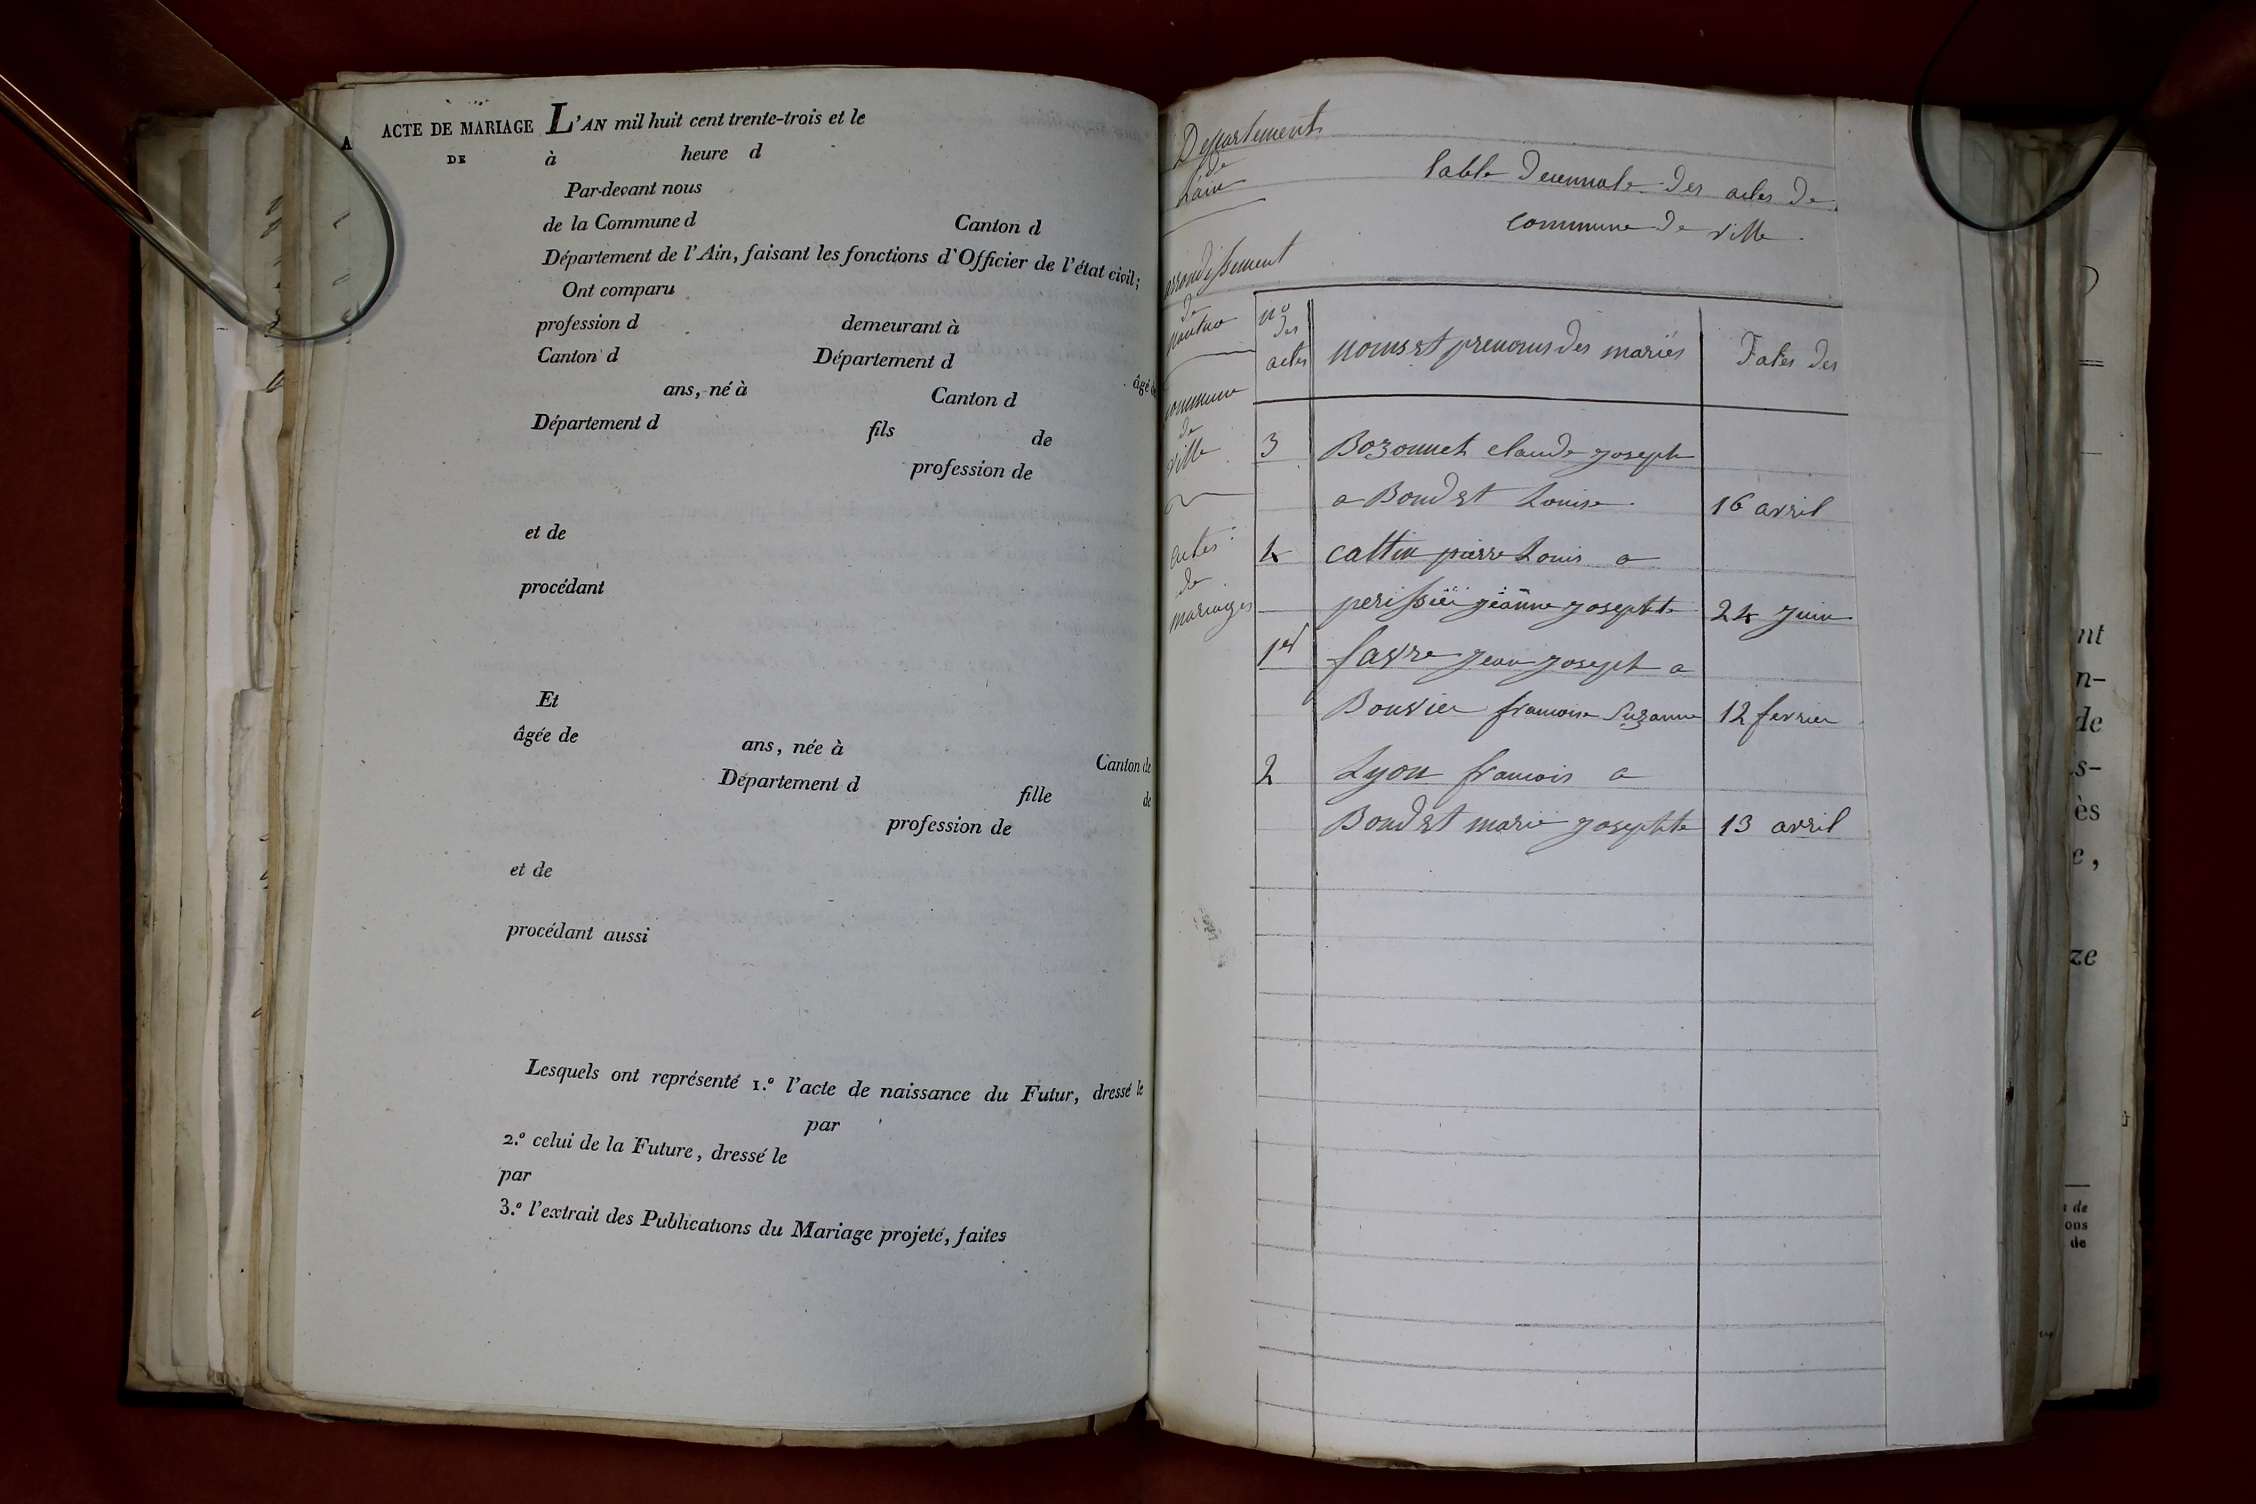 ACTE DE MARIAGE L'AN mil huit cent trente-trois et le
DE à heure d
Par-devant nous
de la Commune d Canton d
Département de l'Ain, faisant les fonctions d'Officier de l'état civil;
Ont comparu
profession d demeurant à
Canton d Département d
âgé de
ans, né à Canton d
Département d fils de
profession de
et de
procédant
Et
âgée de ans, née à Canton de
Département d fille de
profession de
et de
procédant aussi
Lesquels ont représenté 1.º l'acte de naissance du Futur, dressé le
par
2.º celui de la Future, dressé le
par
3.º l'extrait des Publications du Mariage projeté, faites
Departement
de
Lain
arrondissement
de
nantua
commune
de
ville
actes
de
mariages
table decennale des actes de
commune de ville
nº des actes
noms et prenoms des mariés
Dates des
3 Bozonnet claude joseph
a Boudet Louise 16 avril
4 cattin pierre Louis a
perissier jeanne josephte 24 juin
1er favre jean joseph a
Bouvier francoise Suzanne 12 fevrier
2 Lyon francois a
Boudet marie josephte 13 avril
nt
n-
de
s-
ès
e,
ze
de
ons
de